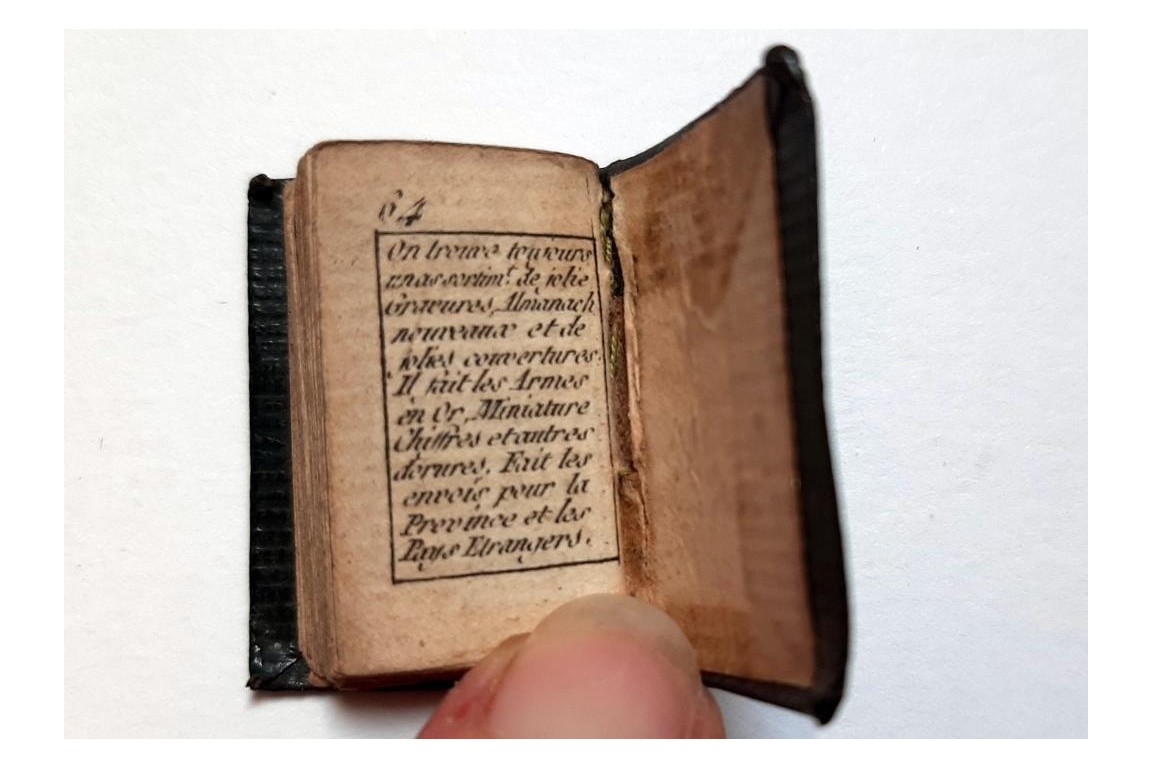 64
On trouve toujours
un assortimt. de jolie
Gravures, Almanach
nouveaux et de
jolies couvertures.
Il fait les Armes
en Or, Miniature
Chiffres et autres
dorures. Fait les
envois pour la
Province et les
Pays Etrangers.